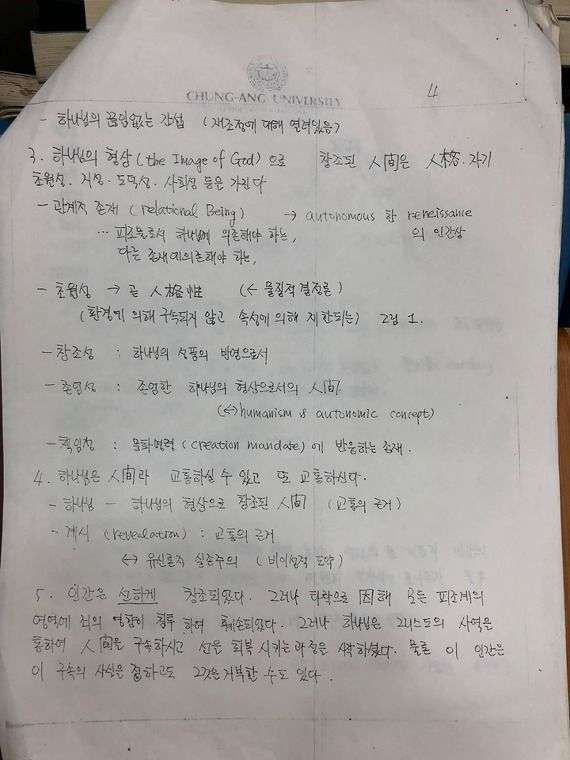 CHUNG-ANG UNIVERSITY
4
- 하나님의 끊임없는 간섭 (재조정에 대해 열려있음)
3. 하나님의 형상(the Image of God)으로 창조된 人間은 人格. 자기
초월성. 지성. 도덕성. 사회성 등을 가진다
- 관계적 존재 (relational Being) → autonomous 한 reneissance
… 피조물로서 하나님께 의존해야 하는, 의 인간상
다른 존재에 의존해야 하는,
- 초월성 → 곧 人格性 (← 물질적 결정론)
(환경에 의해 구속되지 않고 속성에 의해 제한되는) 그림 1.
- 창조성 : 하나님의 성품의 반영으로서
- 존엄성 : 존엄한 하나님의 형상으로서의 人間
(↔ humanism & autonomic concept)
- 책임성 : 문화명령 (creation mandate)에 반응하는 존재.
4. 하나님은 人間과 교통하실 수 있고 또 교통하신다.
- 하나님 - 하나님의 형상으로 창조된 人間 (교통의 근거)
- 계시 (revealation) : 교통의 근거
↔ 유신론적 실존주의 (비이성적 도약)
5. 인간은 선하게 창조되었다. 그러나 타락으로 因해 모든 피조계의
영역에 죄의 영향이 침투하여 훼손되었다. 그러나 하나님은 그리스도의 사역을
통하여 人間을 구속하시고 선을 회복시키는 과정을 시작하셨다. 물론 이 인간은
이 구속의 사실을 접하고도 그것을 거부할 수도 있다.